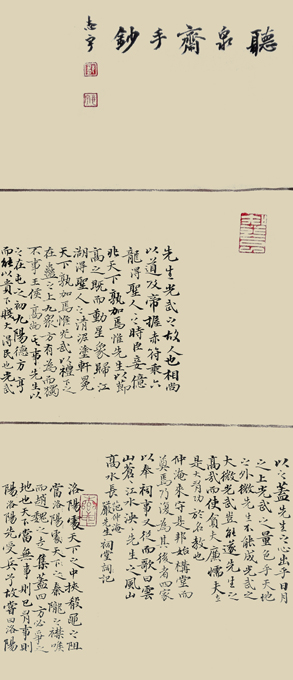 聽泉齋手鈔
先生光武之故人也相尚
以道及帝握赤符乘六
龍得聖人之時臣妾億
兆天下孰加焉惟先生以節
高之既而動星象歸江
湖得聖人之清泥塗軒冕
天下孰加焉惟光武以禮下之
在蠱之上九眾方有為而獨
不事王侯高尚其事先生以
之在屯之初九陽德方亨
而能以貴下賤大得民也光武
以之蓋先生之心出乎日月
之上光武之量包乎天地
之外微先生不能成光武之
大微光武豈能遂先生之
高哉而使貪夫廉懦夫立
是大有功於名教也
仲淹來守是邦始構堂而
奠焉乃復為其後者四家
以奉祠事又從而歌曰雲
山蒼江水泱先生之風山
高水長 范仲淹嚴先生祠堂記
洛陽處天下之中挾殽黽之阻
當洛陽處天下之秦隴之襟喉
而趙魏之走集蓋四方必爭之
地也天下當無事則已有事則
陽洛陽先受兵予故嘗曰洛陽